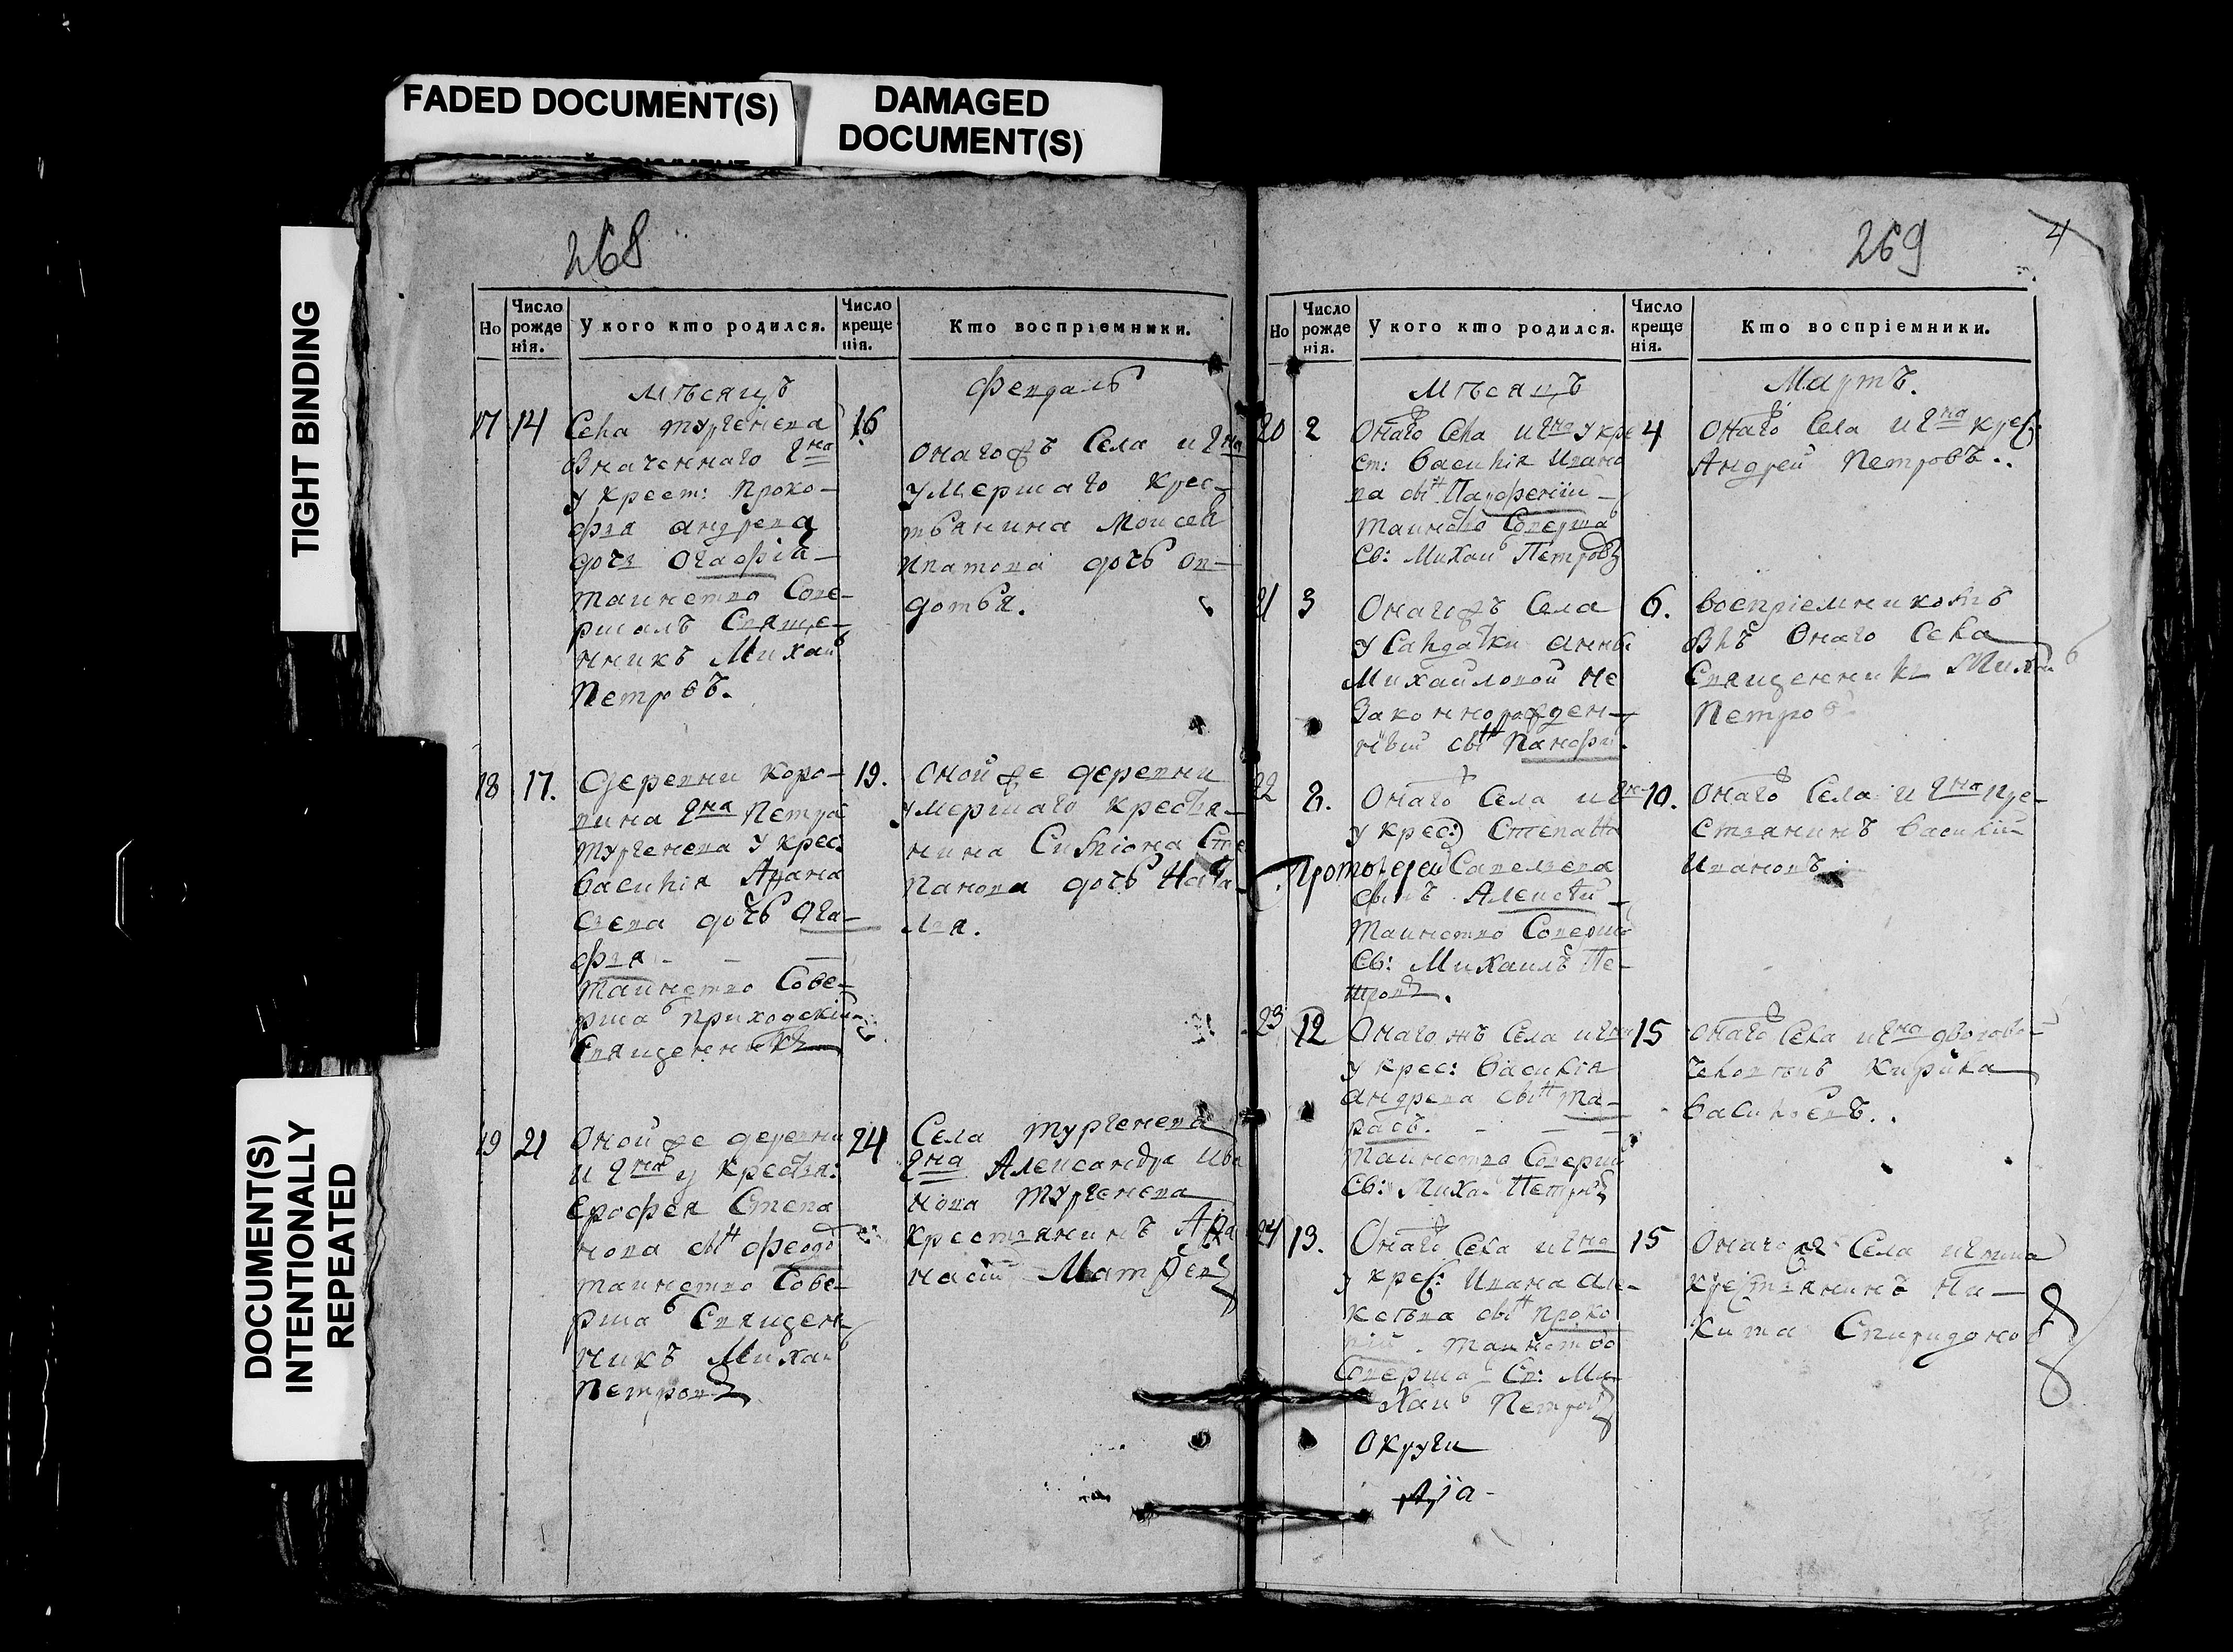 FADED DOCUMENT(S)
DAMAGED
DOCUMENT(S)
TIGHT BINDING
DOCUMENT(S)
INTENTIONALLY
REPEATED
268
Но
Число рожде нія.
У кого кто родился.
Число креще нія.
Кто воспріемники.
Мѣсяцъ
февраль
17 14
Села тургенева
Значеннаго
у крест: Проко-
фья андрева
дочь Огафiя-
таинство Сове-
ршалъ Свяще-
нникъ Михаи
Петровъ.
16
онагожъ Села и
умершаго крес-
тьянина Моисея
ипатова дочь ов-
дотья.
18 17.
Деревни коро-
вина Петра
тургенева у крес:
василiя Афана
сьева дочь Ога-
фья
таинство Сове-
рша приходскiй
Священникъ
19.
оной же деревни
умершаго крестья-
нина Сте
панова дочь Ната-
лья.
19 21
Оной же деревни
и у крестья:
Ерофея Степа
нова сынъ феодо
таинство Сове-
рша Священ-
никъ Михаи
Петровъ
24
Села тургенева
Александра Ива
нова тургенева
крестьянинъ Афа
насiй Матвеевъ
269
4
Но
Число рожде нія.
У кого кто родился.
Число креще нія.
Кто воспріемники.
Мѣсяцъ
Мартъ.
20 2
Онаго Села и у кре
ст: василiя Ивано
ва сынъ Парфенiй
таинство Соверша
Св: Михаи Петровъ
4
Онаго Села и крес:
Андрей Петровъ..
21 3
Онагожъ Села
у Салдатки анны
Михайловой не
Законнорожден-
ный сынъ
6.
воспрiемникомъ
былъ Онаго Села
Священникъ Михаи
Петров
22 8.
Онаго Села и
у крес: Степана
Протоiерей
Савельева
сынъ Алексей
Таинство Соверша
Св: Михаилъ Пе-
тровъ.
10.
Онаго Села и кре-
стьянинъ василiй
Ивановъ
23 12
Онаго жъ Села и
у крес: василiя
андрева сынъ та-
расъ.
таинство Соверши
Св: Миха Петровъ
15
онаго Села и дворово
человекъ Кирила
васильевъ.
24 13.
Онаго Села и
у крес: Ивана але-
ксева сынъ проко
пiй. таинство
Соверша Св: Ми-
хаи Петровъ
15
Онаго же Села и
крестьянинъ Ни-
кита Спиридонов
Округи